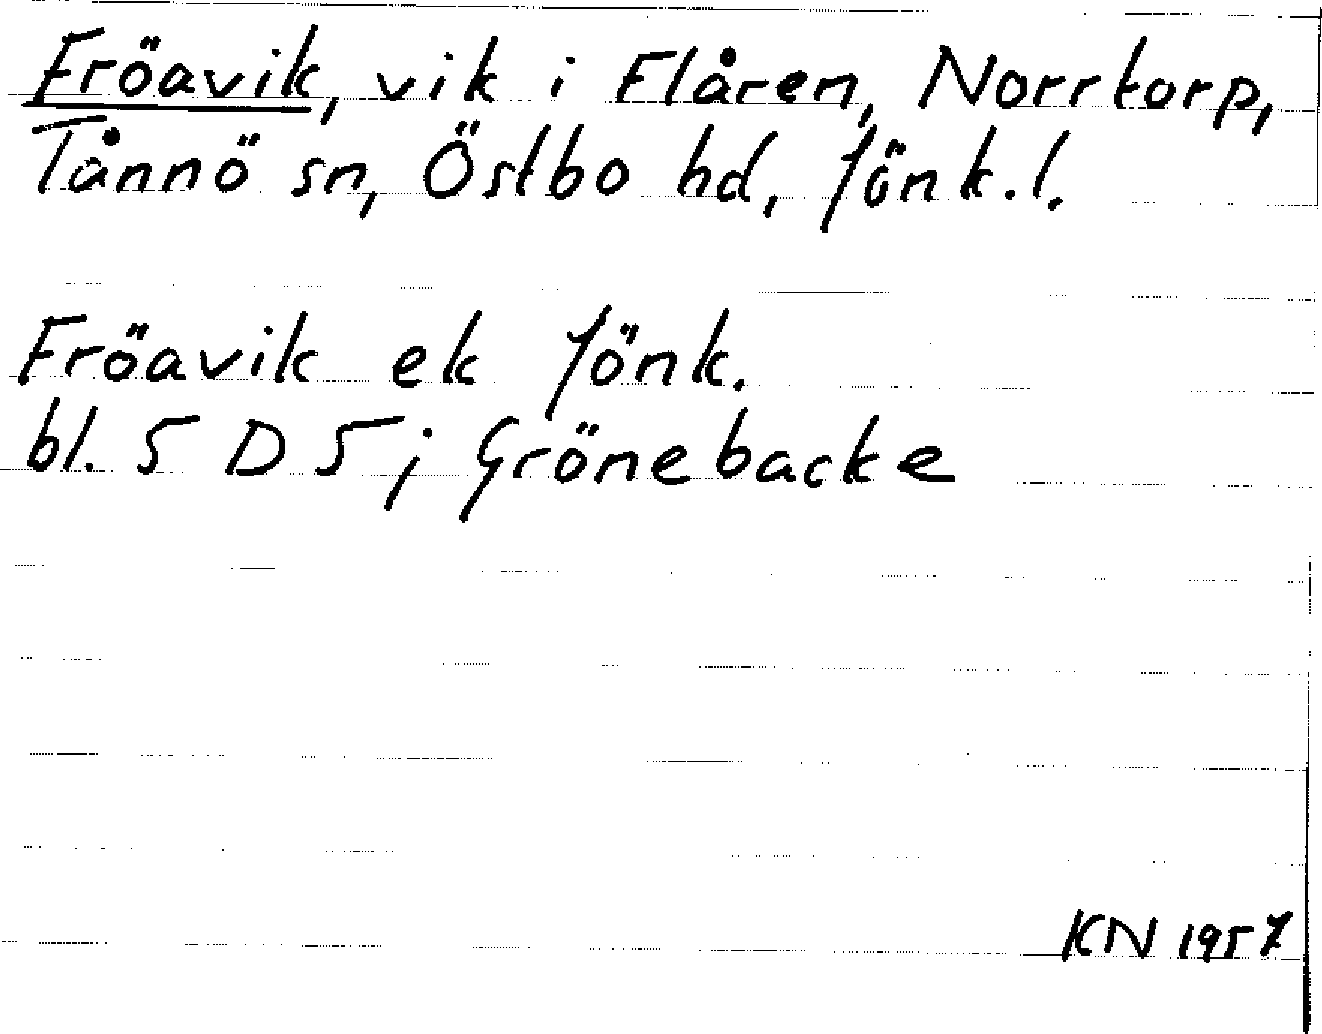 Fröavik, vik i Flåren, Norrtorp,
Tånnö sn, Östbo hd, Jönk. l.
Fröavik ek Jönk.
bl. 5 D 5; Grönebacke
KN 1957